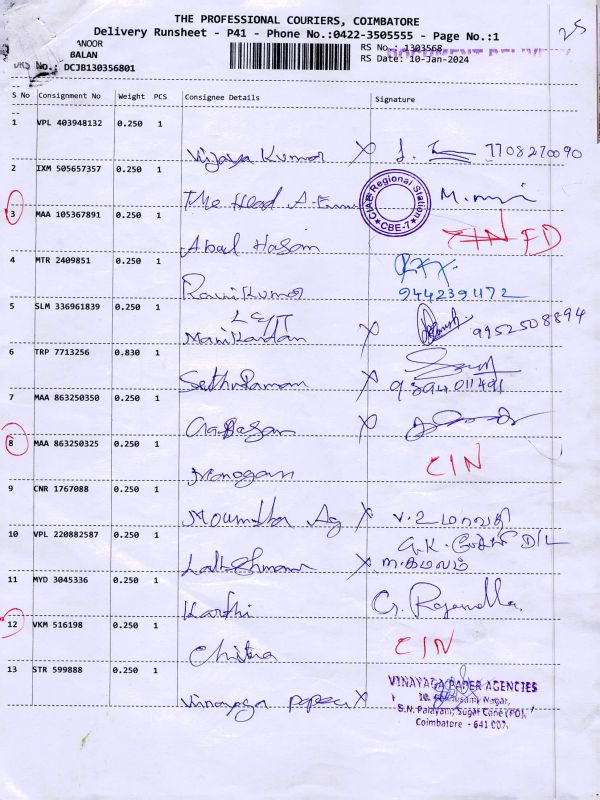 THE PROFESSIONAL COURIERS, COIMBATORE
Delivery Runsheet - P41 - Phone No.:0422-3505555 - Page No.:1
25
ANOOR
BALAN
DRS No.: DCJB130356801
RS No.: 1303568
RS Date: 10-Jan-2024
S No Consignment No Weight PCS Consignee Details Signature
1 VPL 403948132 0.250 1
Vijaya Kumar X 7708270090
2 IXM 505657357 0.250 1
The Head
CIAE Regional Station
CBE-7
3 MAA 105367891 0.250 1
Abul Hasan CIN FD
4 MTR 2409851 0.250 1
Ravikumar 9442391172
L&T
5 SLM 336961839 0.250 1
Manikandan X 9952508894
6 TRP 7713256 0.830 1
Sethuraman X 9894011491
7 MAA 863250350 0.250 1
X
8 MAA 863250325 0.250 1
Manogam CIN
9 CNR 1767088 0.250 1
X
10 VPL 220882587 0.250 1
D/L
Lakshmanan X கமலம்
11 MYD 3045336 0.250 1
Karthi G.
12 VKM 516198 0.250 1
Chitra CIN
13 STR 599888 0.250 1
Vinayaga papers X
VINAYAGA PAPER AGENCIES
Nagar,
S.N. Palayam, Sugar Cane (PO),
Coimbatore - 641 007.